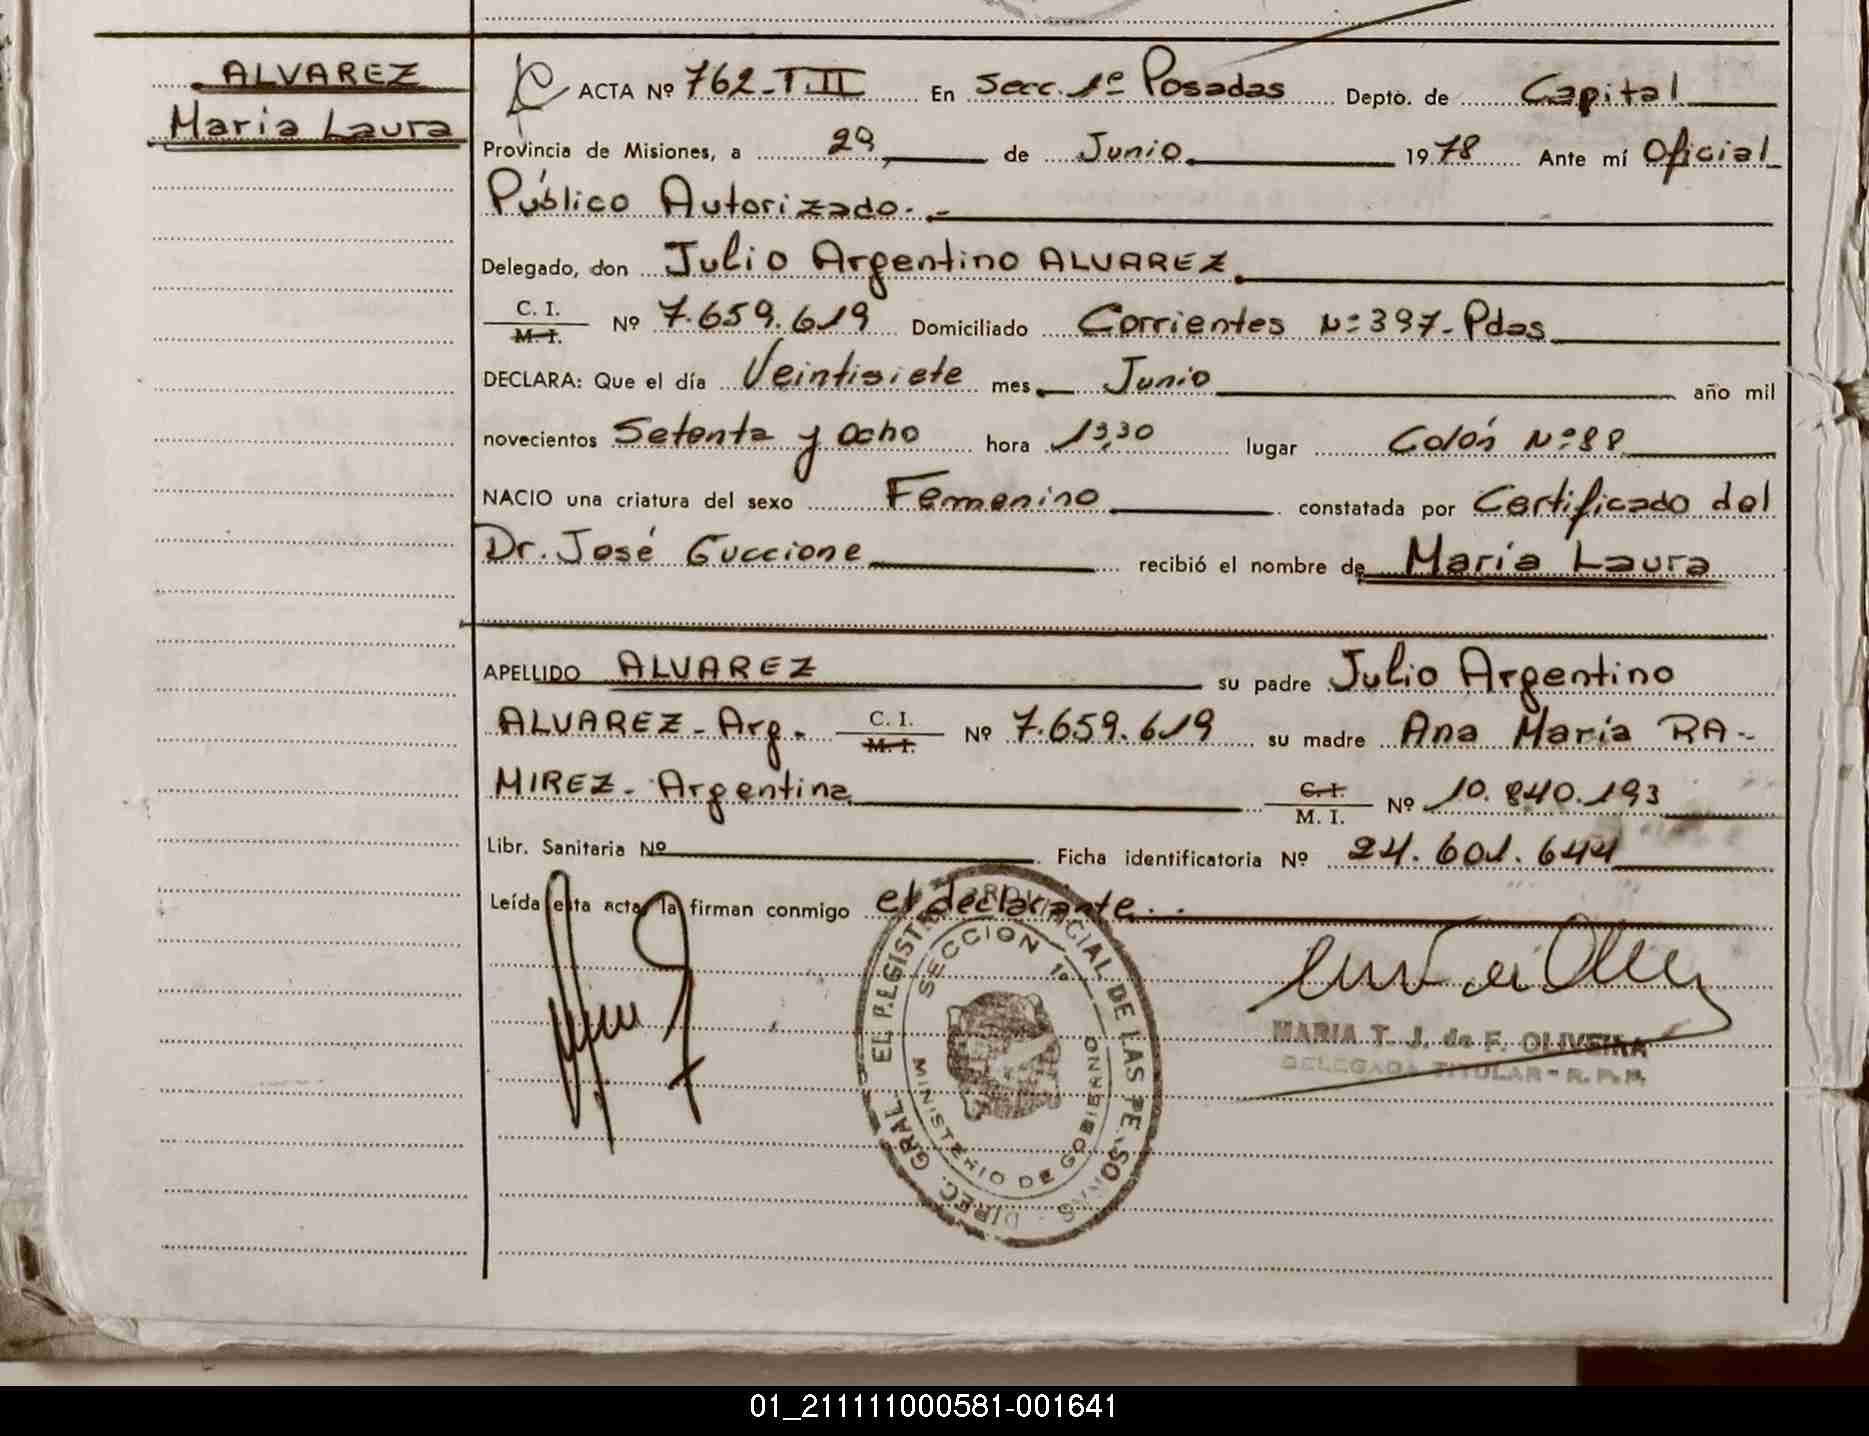 ALVAREZ
Maria Laura
ACTA Nº 762-T.II En Secc. 1ª Posadas Depto. de Capital
Provincia de Misiones, a 29 de Junio 1978 Ante mí Oficial
Público Autorizado.-
Delegado, don Julio Argentino ALVAREZ
C. I.
M. I. Nº 7.659.619 Domiciliado Corrientes Nº 397- Pdas
DECLARA: Que el día Veintisiete mes Junio año mil
novecientos Setenta y Ocho hora 13,30 lugar Colón Nº 88
NACIO una criatura del sexo Femenino constatada por Certificado del
Dr. José Guccione recibió el nombre de María Laura
APELLIDO ALVAREZ su padre Julio Argentino
ALVAREZ - Arg. - C. I. M. I. Nº 7.659.619 su madre Ana María RA-
MIREZ - Argentina C. I. M. I. Nº 10.840.193
Libr. Sanitaria Nº Ficha identificatoria Nº 24.601.644
Leída esta acta, la firman conmigo el declarante..
DIREC. GRAL. EL REGISTRO PROVINCIAL DE LAS PERSONAS
SECCION 1ª
MINISTERIO DE GOBIERNO
MARIA T. J. de F. OLIVEIRA
DELEGADA TITULAR - R. P. P.
01_211111000581-001641